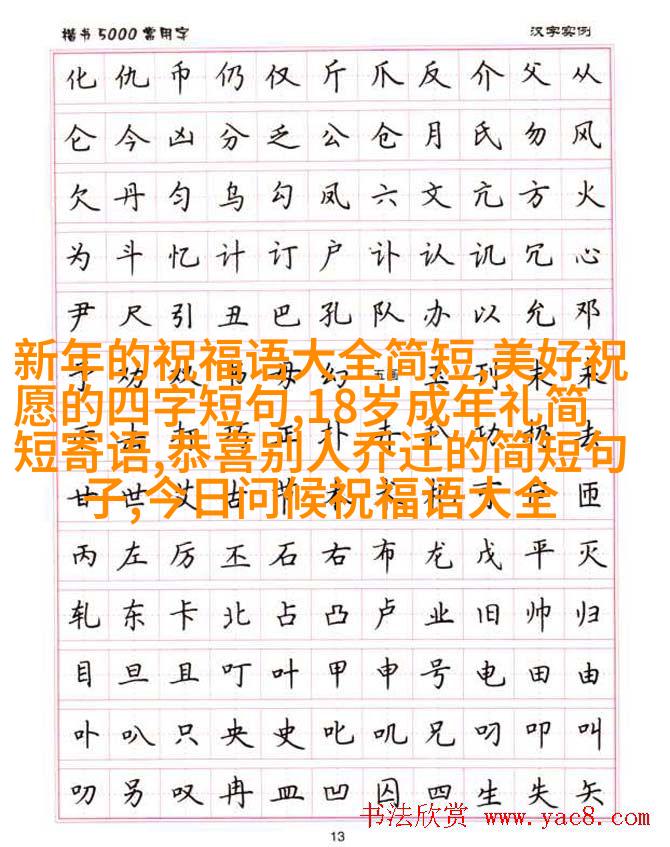 楷书5000常用字
汉字实例
化仇币仍仅斤爪反介父从
仑今凶分乏公仓月氏勿风
欠丹匀乌勾凤六文亢方火
为斗忆计订户讣认讥冗心
尹尺引丑巴孔队办以允邓
新年的祝福语大全简短,美好祝
愿的四字短句,18岁成年礼简
短寄语,恭喜别人乔迁的简短句
子,今日问候祝福语大全
甘世艾古节
匝
丙左厉丕石右布龙戊平灭
轧东卡北占凸卢业旧帅归
目旦且叮叶甲申号电田由
卟叭只央史叱叽兄叼叩叫
叨另叹冉皿凹囚四生失矢
书法欣赏 www.yac8.com
13